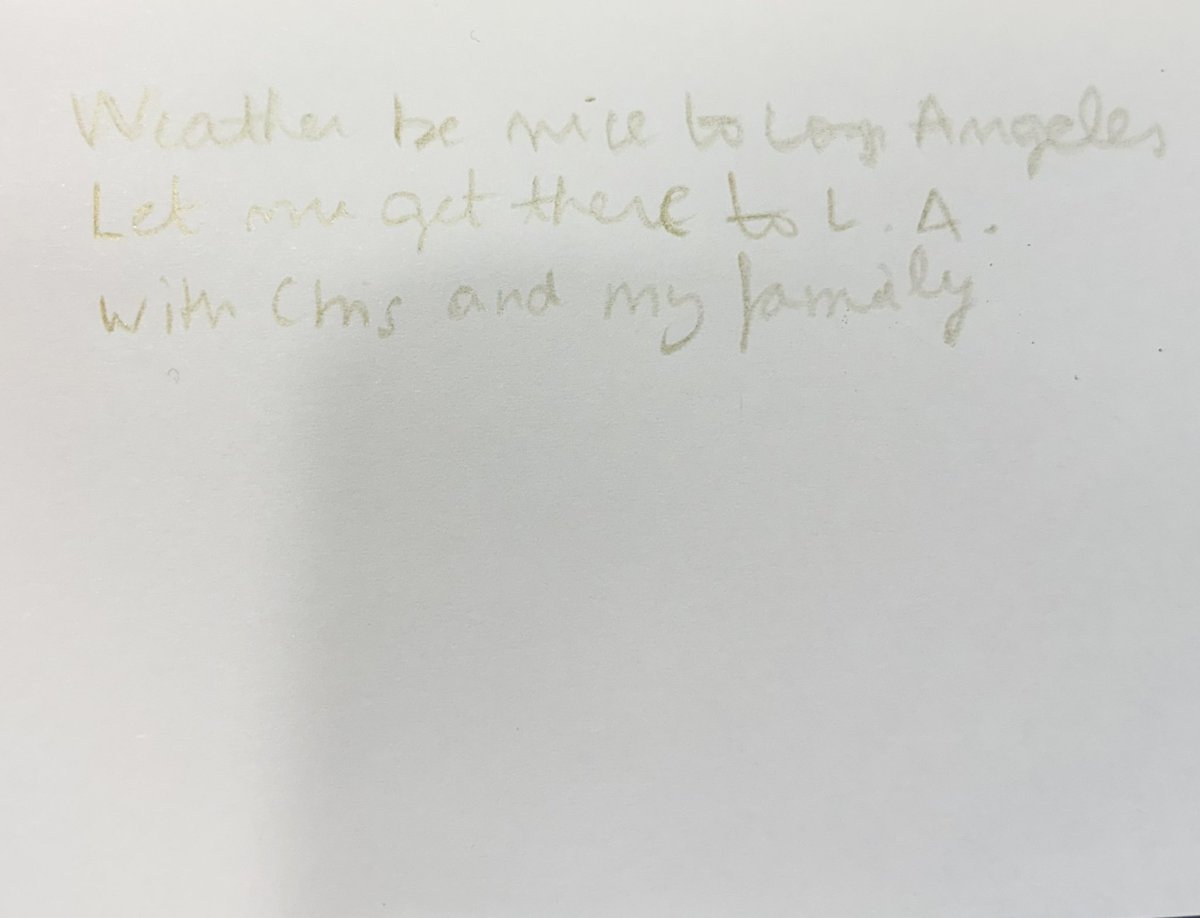 Weather be nice to Los Angeles
Let me get there to L.A.
with Chris and my family